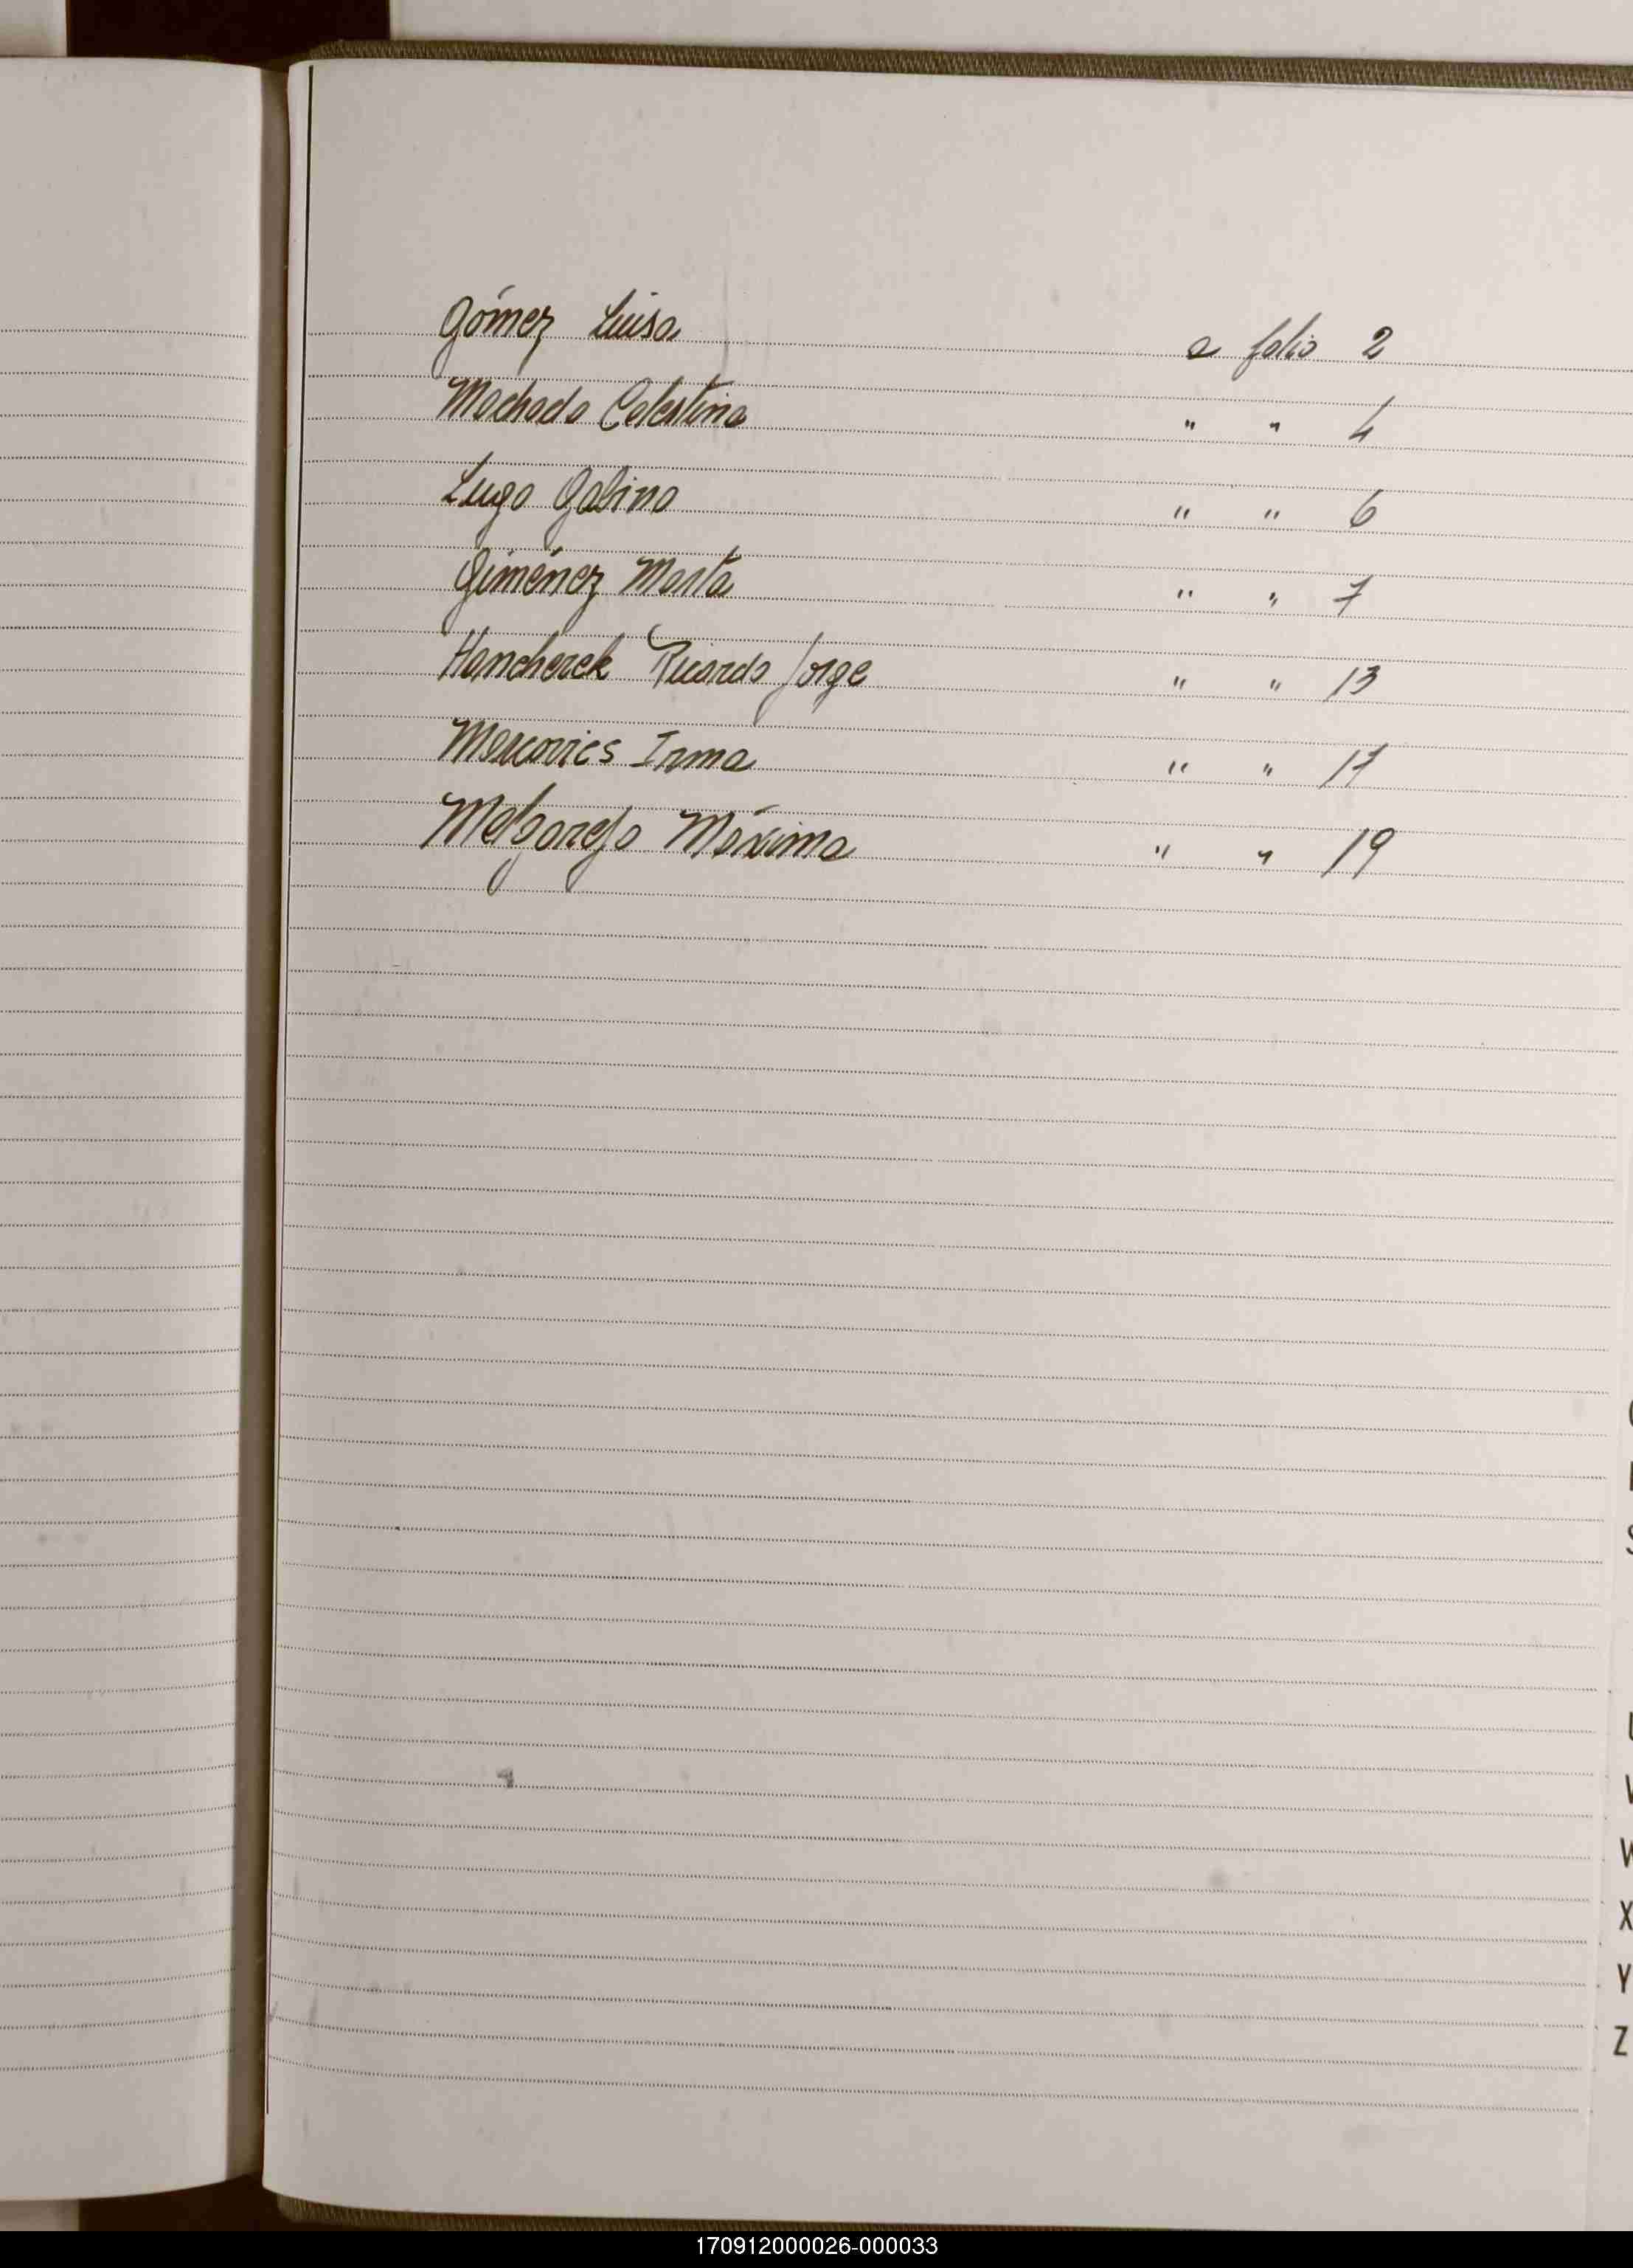 Gómez Luisa a folio 2
Machado Celestina " " 4
Lugo Gabino " " 6
Giménez Marta " " 7
Hancherek Ricardo Jorge " " 13
Mercovics Irma " " 17
Melgarejo Máxima " " 19
S
U
V
W
X
Y
Z
170912000026-000033